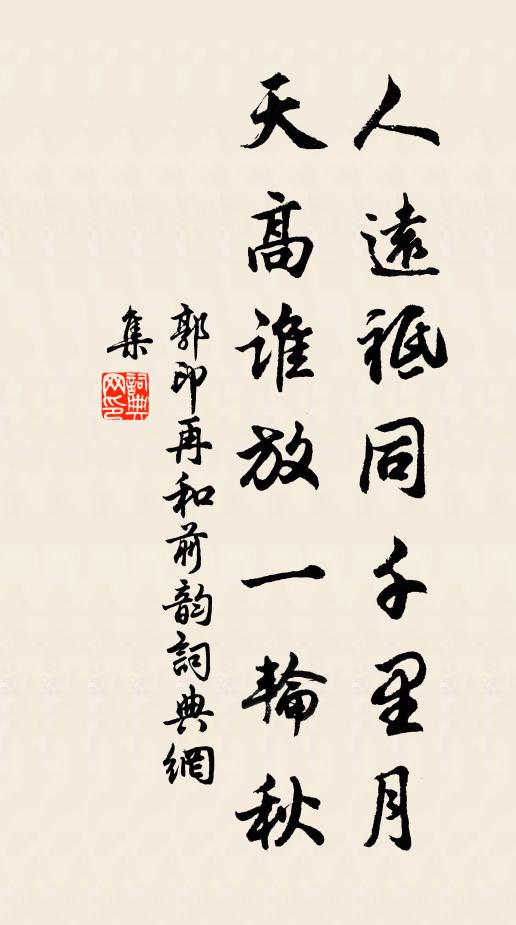 人遠祗同千里月
天高誰放一輪秋
郭印再和前韵詞典網
集
詞典网印